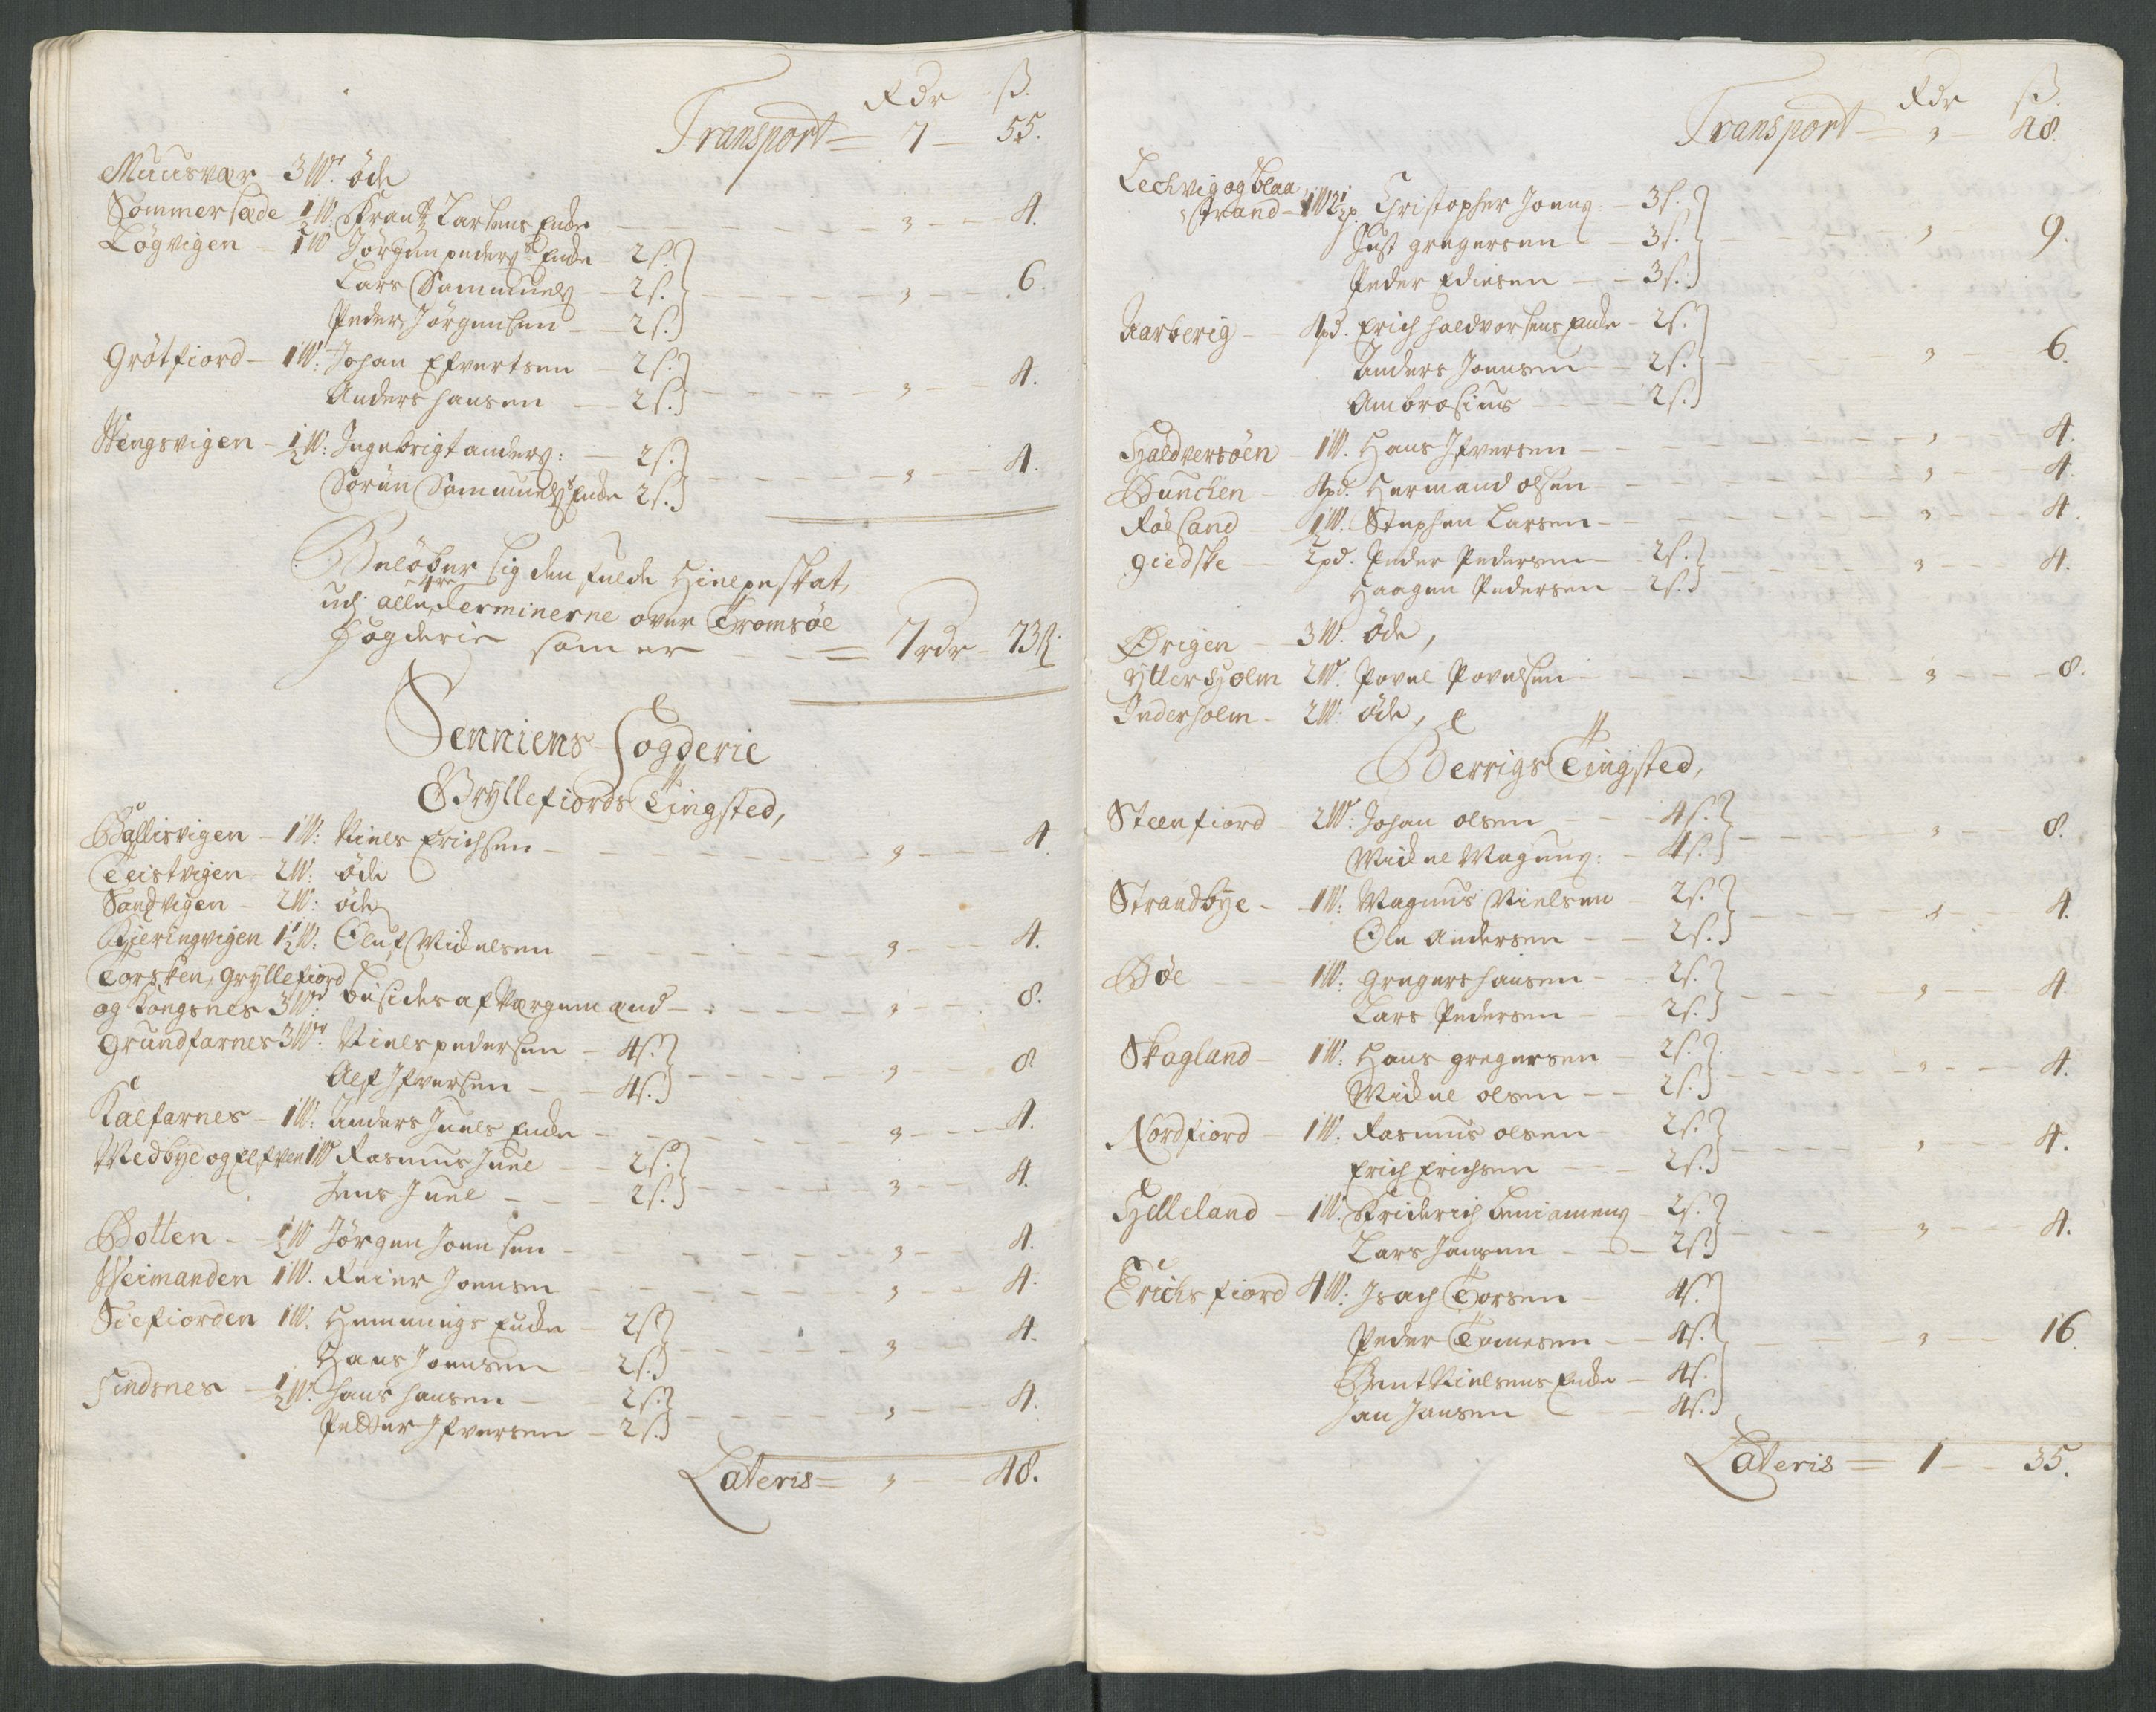 Rdr ß.
Transport = 7 — 55.
Muusvær 3 W. öde
Sommersæde ½ W. Frantz Larsens Encke — 3 — 4.
Løgvigen — 1 W Jörgen peders Encke — 2 s.
Lars Sammuels — 2 s. — 3 — 6.
Peder Jörgensen — 2 s.
Grötfiord — 1 W: Johan Efvertsen — 2 s.
Anders hansen — 2 s. — 3 — 4.
Wengsvigen — ½ W: Ingebrigt anders: — 2 s.
Sören Sammuels Encke 2 s. — 3 — 4.
Belöber sig den fulde Hielpe skat,
udj alle 4re Terminerne over Tromsöe
Fogderie som er — = 7 rdr — 73 ß.
Senniens Fogderie
Gryllefiords Tingsted,
Ballisvigen — 1 W: Niels Erichsen — 3 — 4
Teistvigen 2 W: öde
Sandvigen — 2 W: öde
Kieringvigen 1½ W: Oluf Mickelsen — 3 — 4.
Torsken, Gryllefiord
og Kongsnes 3 W: besides af Værgemænd — 3 — 8.
Grundfarnes 3 W: Niels pedersen — 4 s.
Alf Ifversen — 4 s. — 3 — 8
Kalfarnes — 1 W: Anders Juels Encke — 3 — 4.
Medbye og Elfven 1 W Rasmus Juel — 2 s.
Jens Juel — 2 s. — 3 — 4.
Botten — ½ W Jörgen Joensen — 3 — 4.
Weimanden 1 W. Reier Joensen — 3 — 4.
Sifiorden 1 W. Hemmings Encke — 2 s.
Hans Joensen — 2 s. — 3 — 4.
Findsnes — ½ W. hans hansen — 2 s.
Pedder Ifversen — 2 s. — 3 — 4.
Lateris = 3 — 48.
Rdr ß.
Transport = 3 — 48.
Lechvig og blaa
Strand — Christopher Joens — 3 s.
Just gregersen — 3 s. — 3 — 9.
Peder Ediesen — 3 s.
Aarberig — 4 pd. Erich haldvorsens Encke — 2 s.
Anders Joensen — 2 s. — 3 — 6.
Ambrosius — 2 s.
Hjaldversöen 1 W. Hans Ifversen — 3 — 4.
Bunchen 4 pd. Hermand olsen — 3 — 4.
Röeland ½ W. Stephen Larsen — 3 — 4.
giedske 2 pd. Peder Pedersen — 2 s.
Haagen Pedersen — 2 s. — 3 — 4.
Örigen — 3 W. öde,
Ytterholm 2 W. Povel Povelsen — 3 — 8.
Inderholm — 2 W: öde,
Berrigs Tingsted,
Steenfiord 2 W: Johan olsen — 4 s.
Mickel Magens: — 4 s. — 3 — 8.
Strandbye — 1 W: Magnus Nielsen — 2 s.
Ole Andersen — 2 s. — 3 — 4.
Böe — 1 W: gregers hansen — 2 s.
Lars Pedersen — 2 s. — 3 — 4
Skagland — 1 W: Hans gregersen — 2 s.
Mickel olsen — 2 s. — 3 — 4.
Nordfiord — 1 W. Rasmus olsen — 2 s.
Erich Erichsen — 2 s. — 3 — 4.
Helleland — 1 W. Friderich Beniamens — 2 s.
Lars Jansen — 2 s. — 3 — 4.
Erichsfiord 4 W: Isach Torsen — 4 s.
Peder Tomesen — 4 s. — 3 — 16.
Bent Nielsens Encke — 4 s.
Jan Jansen — 4 s.
Lateris = 1 — 35.